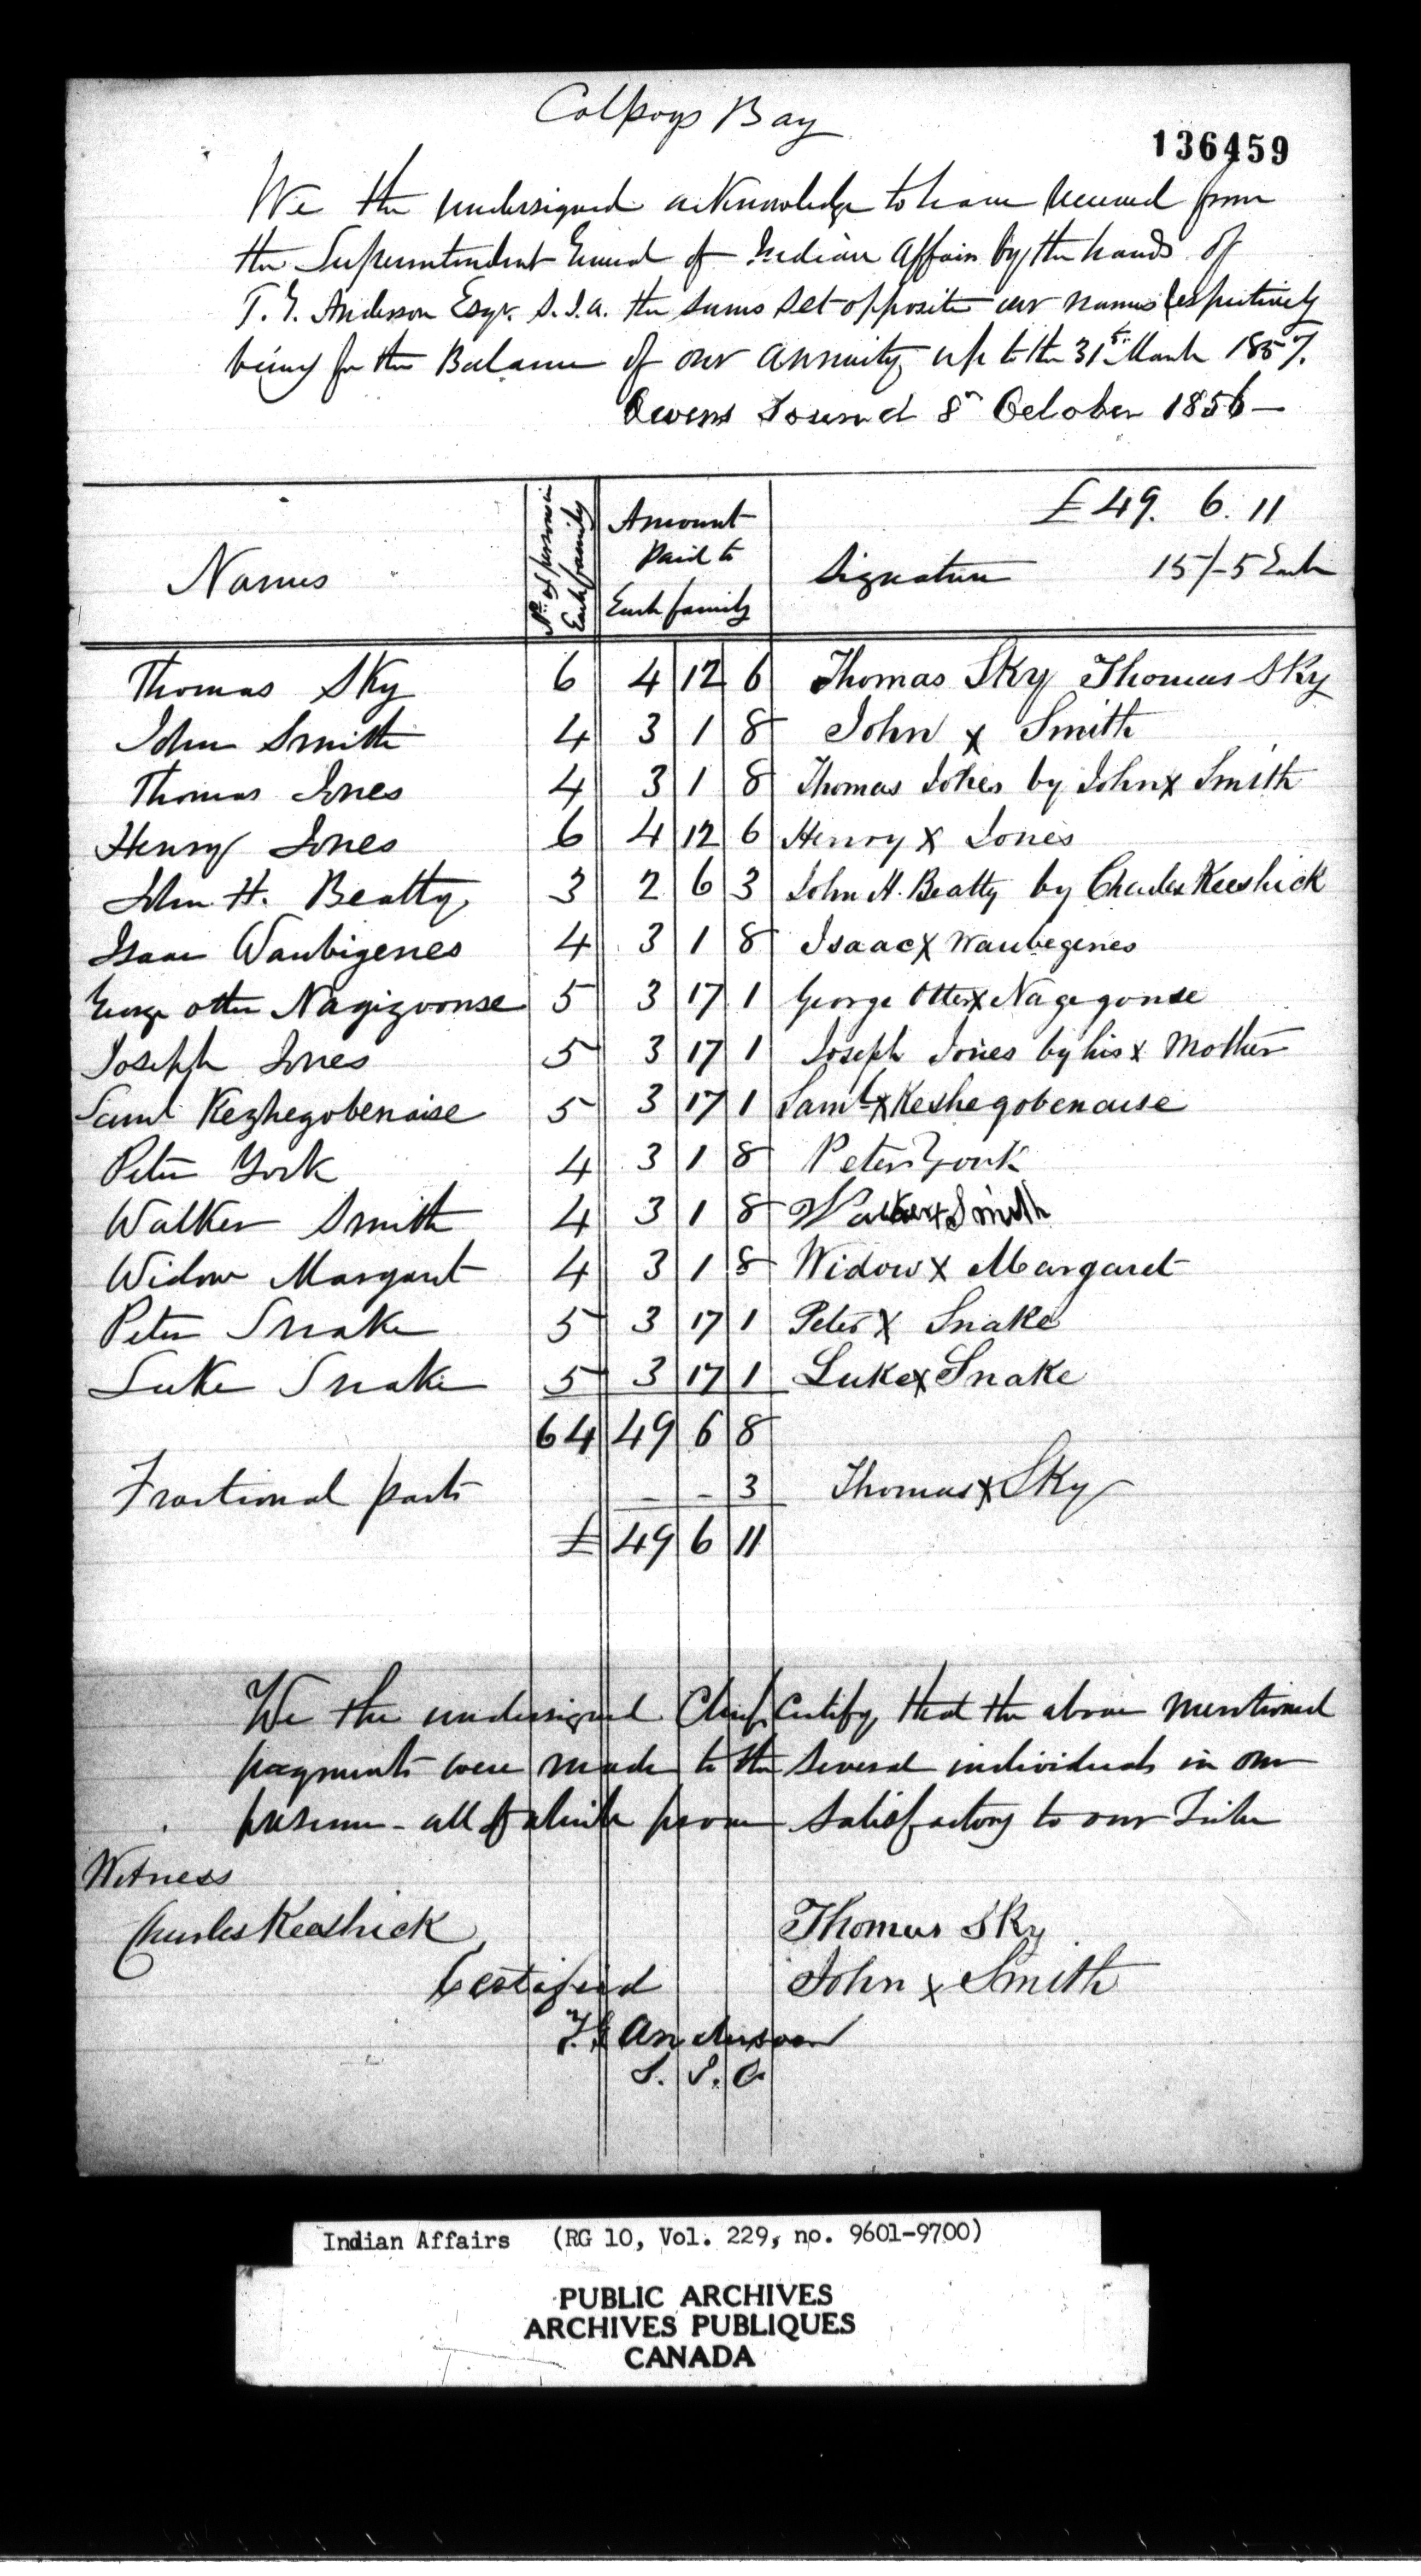 Colpoys Bay
136459
We the undersigned acknowledge to have received from
the Superintendent General of Indian Affairs by the hands of
T. G. Anderson Esqr. S.I.A. the sums set opposite our names respectively
being for the Balance of our annuity up to the 31st March 1857.
Owens Sound 8th October 1856 —
£49. 6. 11
Names No. of persons in Each family Amount Paid to Each family Signature 15/-5 Each
Thomas Sky 6 4 12 6 Thomas Sky Thomas Sky
John Smith 4 3 1 8 John x Smith
Thomas Jones 4 3 1 8 Thomas Jones by John x Smith
Henry Jones 6 4 12 6 Henry x Jones
John H. Beatty 3 2 6 3 John H. Beatty by Charles Keeshick
Isaac Waubigenes 4 3 1 8 Isaac x Waubegenes
George otter Nagizoonse 5 3 17 1 George Otter x Nagegonse
Joseph Jones 5 3 17 1 Joseph Jones by his x Mother
Saml Kezhegobenaise 5 3 17 1 Saml x Keshegobenaise
Peter York 4 3 1 8 Peter York
Walker Smith 4 3 1 8 Walker x Smith
Widow Margaret 4 3 1 8 Widow x Margaret
Peter Snake 5 3 17 1 Peter x Snake
Luke Snake 5 3 17 1 Luke x Snake
64 49 6 8
Fractional parts – – 3 Thomas x Sky
£ 49 6 11
We the undersigned Chiefs Certify that the above mentioned
payments were made to the several individuals in our
presence - all of which prove satisfactory to our Tribe
Witness
Charles Keeshick Thomas Sky
Certified John x Smith
T. G. Anderson
S. I. A.
Indian Affairs (RG 10, Vol. 229, no. 9601-9700)
PUBLIC ARCHIVES
ARCHIVES PUBLIQUES
CANADA